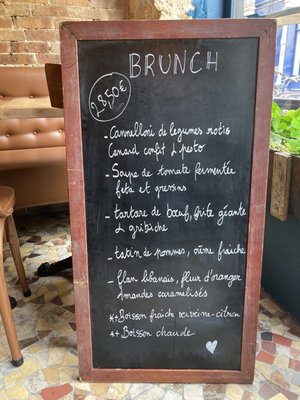 BRUNCH
28,50€
- Cannelloni de légumes rotis
Canard confit & pesto
- Soupe de tomate fermentée
feta et gressins
- tartare de bœuf, frite géante
& gribiche
- tatin de pommes, crème fraîche
- flan libanais, fleur d'oranger
Amandes caramélisés
*+ Boisson fraîche verveine-citron
*+ Boisson chaude